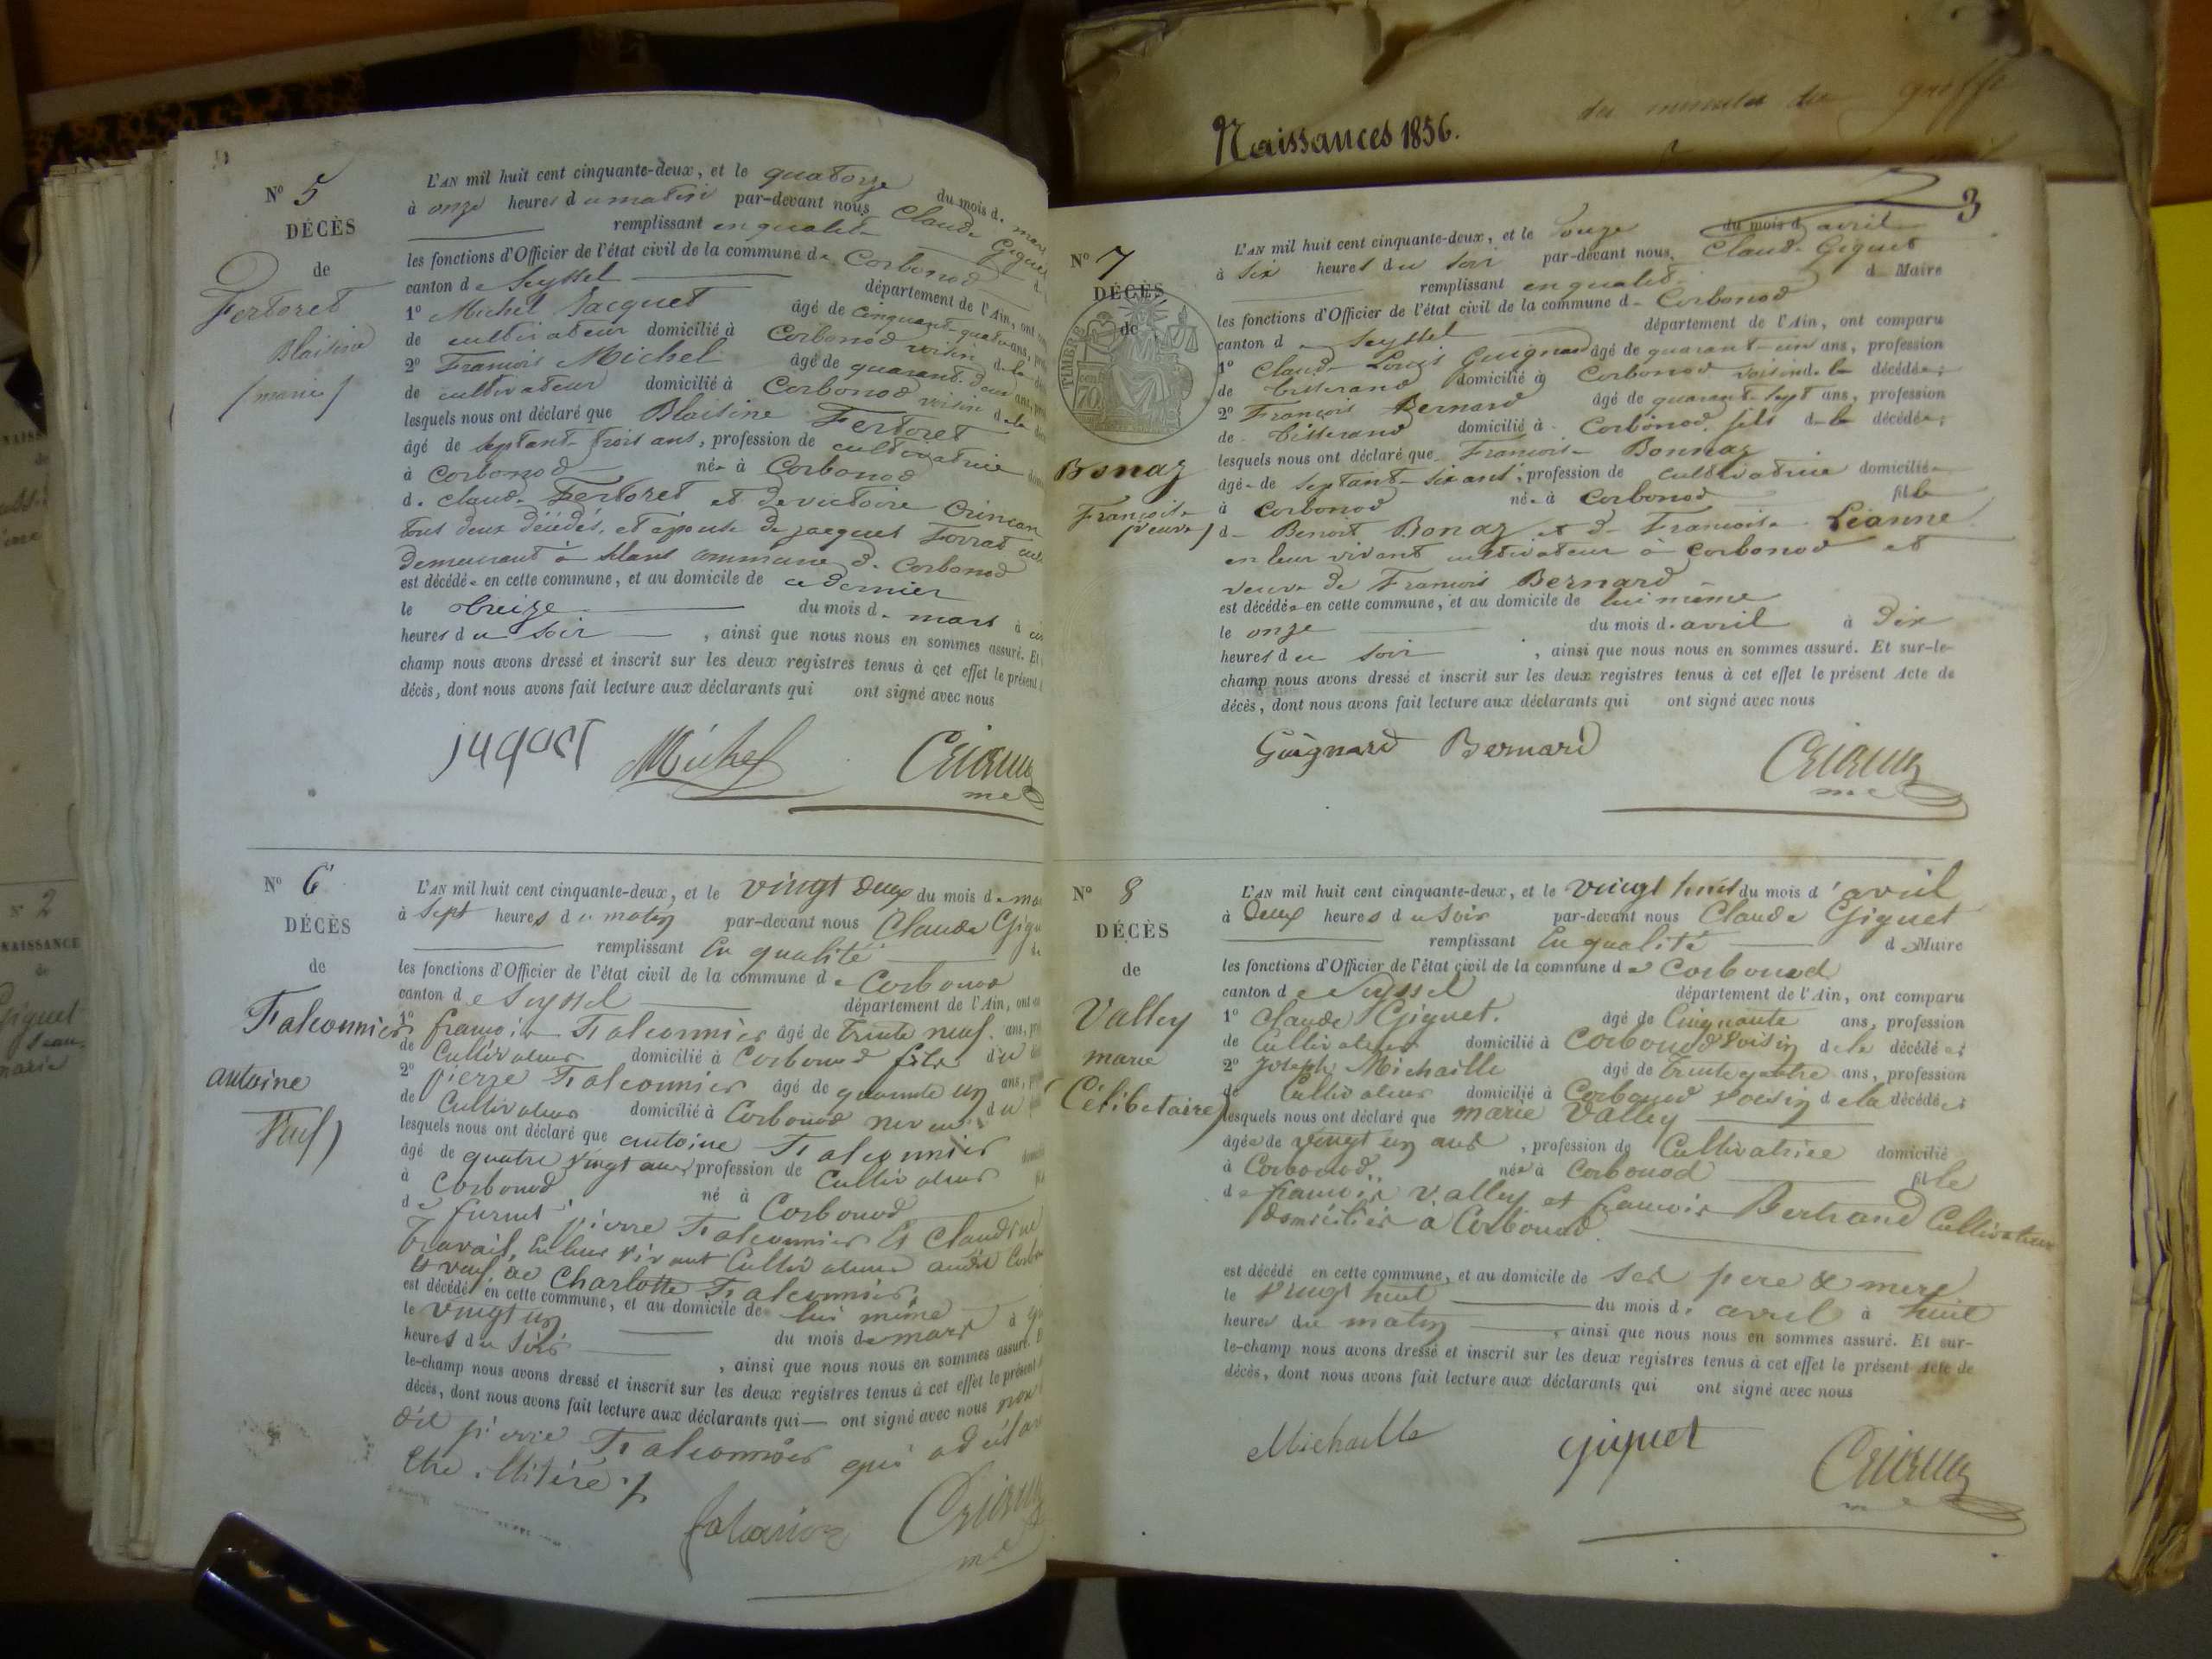 Naissances 1856.
du greffe
N° 5
DÉCÈS
de
Fertoret
Blaisine
(mariée)
L'AN mil huit cent cinquante-deux, et le quatorze du mois de mars
à onze heures du matin par-devant nous Claude Giguet
remplissant en qualité
les fonctions d'Officier de l'état civil de la commune de Corbonod
canton de Seyssel département de l'Ain, ont
1° Michel Jacquet âgé de cinquante-quatre ans,
de cultivateur domicilié à Corbonod voisin de la
2° François Michel âgé de quarant-deux ans,
de cultivateur domicilié à Corbonod voisin de la
lesquels nous ont déclaré que Blaisine Fertoret
âgé de septant-trois ans, profession de cultivatrice
à Corbonod née à Corbonod
de Claude Fertoret et de victoire
tous deux décédés, et épouse de jacques Forrat
demeurant à commune de Corbonod
est décédée en cette commune, et au domicile de ce dernier
le treize du mois de mars à
heures du soir , ainsi que nous nous en sommes assuré. Et
champ nous avons dressé et inscrit sur les deux registres tenus à cet effet le présent
décès, dont nous avons fait lecture aux déclarants qui ont signé avec nous
jaqact Michel
me
N° 6
DÉCÈS
de
Falconnier
antoine
(Veuf)
L'AN mil huit cent cinquante-deux, et le vingt deux du mois de
à sept heures du matin par-devant nous Claude
remplissant En qualité
les fonctions d'Officier de l'état civil de la commune de Corbonod
canton de Seyssel département de l'Ain, ont
1° françois Falconnier âgé de trente neuf ans,
de Cultivateur domicilié à Corbonod fils du
2° pierre Falconnier âgé de quarante un ans,
de Cultivateur domicilié à Corbonod neveu du
lesquels nous ont déclaré que antoine Falconnier
âgé de quatre vingt ans, profession de Cultivateur
à Corbonod né à Corbonod
de furent pierre Falconnier Et Claudine
Travail, En leur vivant Cultivateurs audit
Et veuf de Charlotte Falconnier,
est décédé en cette commune, et au domicile de lui même
le vingt un du mois de mars à
heures du soir , ainsi que nous nous en sommes assuré.
le-champ nous avons dressé et inscrit sur les deux registres tenus à cet effet le présent
décès, dont nous avons fait lecture aux déclarants qui — ont signé avec nous non
dit pierre Falconnier qui a
Etre illitéré
me
3
N° 7
DÉCÈS
de
TIMBRE
70
Bonaz
Françoise
(veuve)
L'AN mil huit cent cinquante-deux, et le douze du mois d avril
à six heures du soir par-devant nous, Claude Giguet
remplissant en qualité de Maire
les fonctions d'Officier de l'état civil de la commune de Corbonod
canton de Seyssel département de l'Ain, ont comparu
1° Claude Louis Guignard âgé de quarant-un ans, profession
de tisserand domicilié à Corbonod voisin de la décédée;
2° François Bernard âgé de quarant-sept ans, profession
de tisserand domicilié à Corbonod, fils de la décédée;
lesquels nous ont déclaré que Françoise Bonnaz
âgée de septant-six ans, profession de cultivatrice domiciliée
à Corbonod née à Corbonod fille
de Benoit Bonaz et de Françoise Léanne
en leur vivant cultivateur à Corbonod et
veuve de François Bernard
est décédée en cette commune, et au domicile de lui même
le onze du mois d. avril à dix
heures du soir , ainsi que nous nous en sommes assuré. Et sur-le-
champ nous avons dressé et inscrit sur les deux registres tenus à cet effet le présent Acte de
décès, dont nous avons fait lecture aux déclarants qui ont signé avec nous
Guignard Bernard
me
N° 8
DÉCÈS
de
Valley
marie
(Célibetaire)
L'AN mil huit cent cinquante-deux, et le vingt huit du mois d'avril
à Deux heures du soir par-devant nous Claude Giguet
remplissant En qualité de Maire
les fonctions d'Officier de l'état civil de la commune de Corbonod
canton de Seyssel département de l'Ain, ont comparu
1° Claude Giguet. âgé de Cinquante ans, profession
de Cultivateur domicilié à Corbonod Voisin de la décédée;
2° Joseph Michaille âgé de trente quatre ans, profession
de Cultivateur domicilié à Corbonod voisin de la décédée;
lesquels nous ont déclaré que marie Valley
âgée de vingt un ans , profession de Cultivatrice domicilié
à Corbonod, née à Corbonod fille
de françois Valley et françoise Bertrand Cultivateurs
domiciliés à Corbonod.
est décédé en cette commune, et au domicile de ses pere & mere
le vingt huit du mois d' avril à huit
heures du matin , ainsi que nous nous en sommes assuré. Et sur-
le-champ nous avons dressé et inscrit sur les deux registres tenus à cet effet le présent Acte de
décès, dont nous avons fait lecture aux déclarants qui ont signé avec nous
Michaille giguet
me
N° 2
NAISSANCE
de
Giguet
Jean
marie